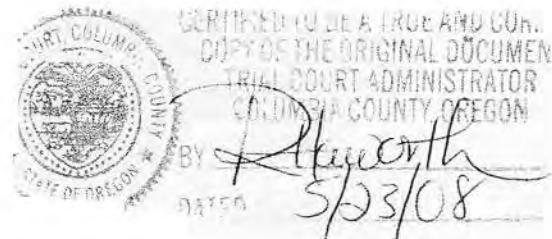 COURT, COLUMBIA COUNTY
STATE OF OREGON
CERTIFIED TO BE A TRUE AND COR
COPY OF THE ORIGINAL DOCUMEN
TRIAL COURT ADMINISTRATOR
COLUMBIA COUNTY, OREGON
BY
DATED 5/23/08